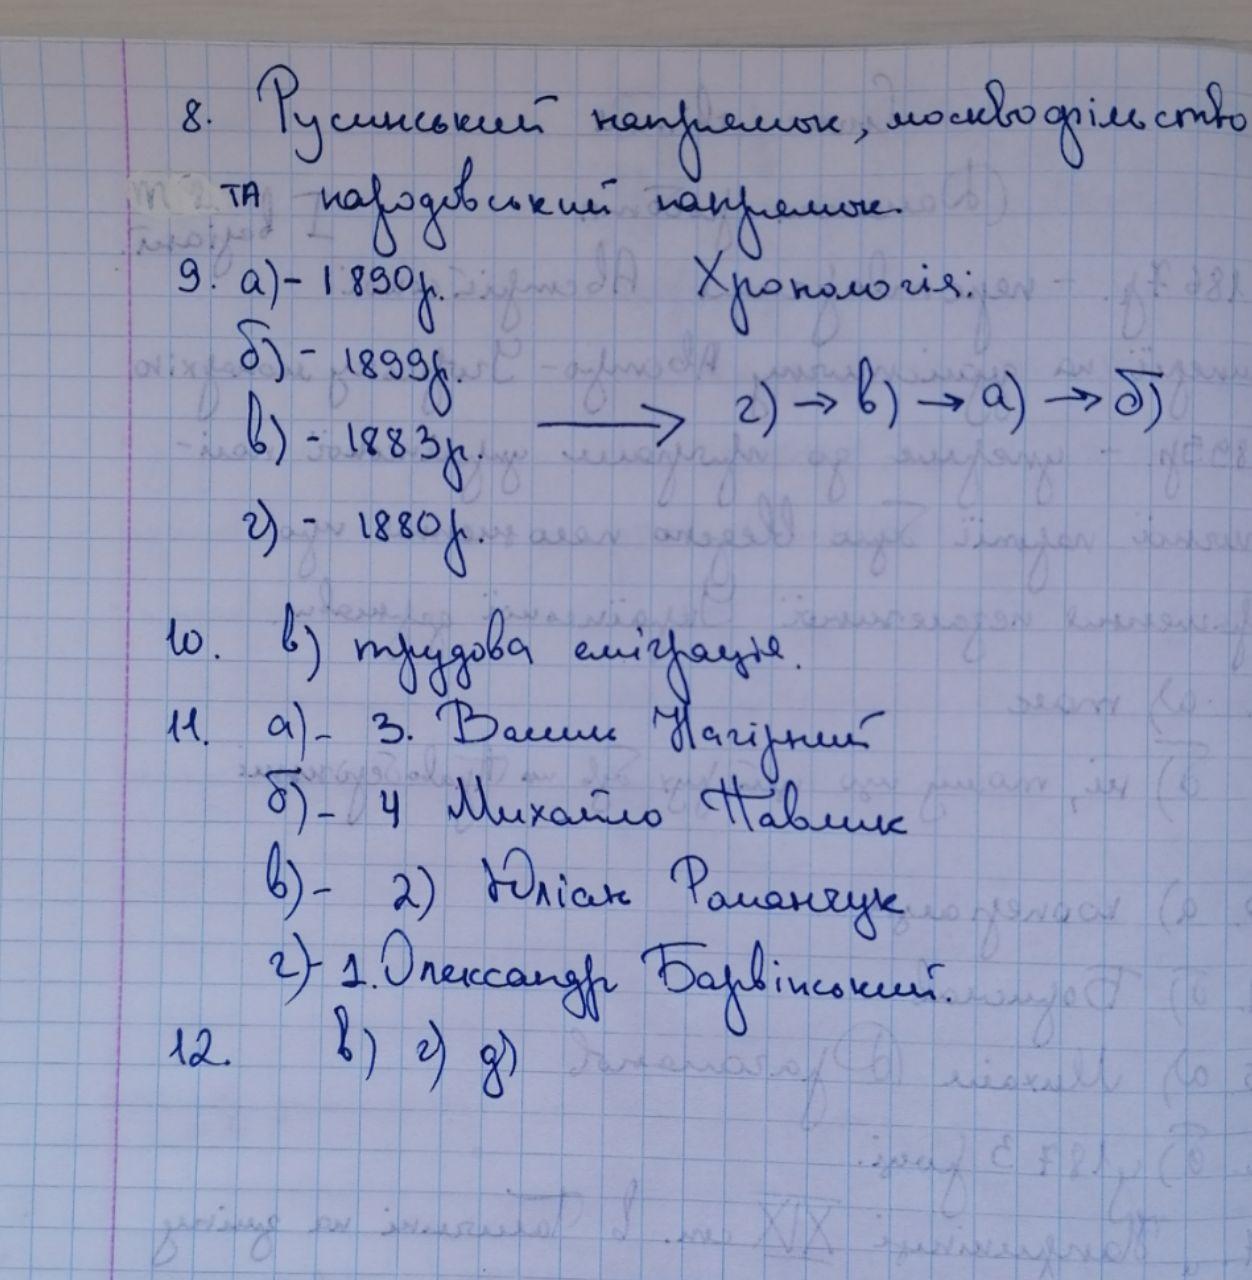 8. Русинський напрямок, москвофільство
та народовський напрямок.
9. а) - 1890р. Хронологія:
б) - 1899р.
в) - 1883р. → г) → в) → а) → б)
г) - 1880р.
10. в) трудова еміграція.
11. а) - 3. Васили Нагірний
б) - 4 Михайло Павлик
в) - 2) Юліан Романчук
г) - 1. Олександр Барвінський.
12. в) г) д)